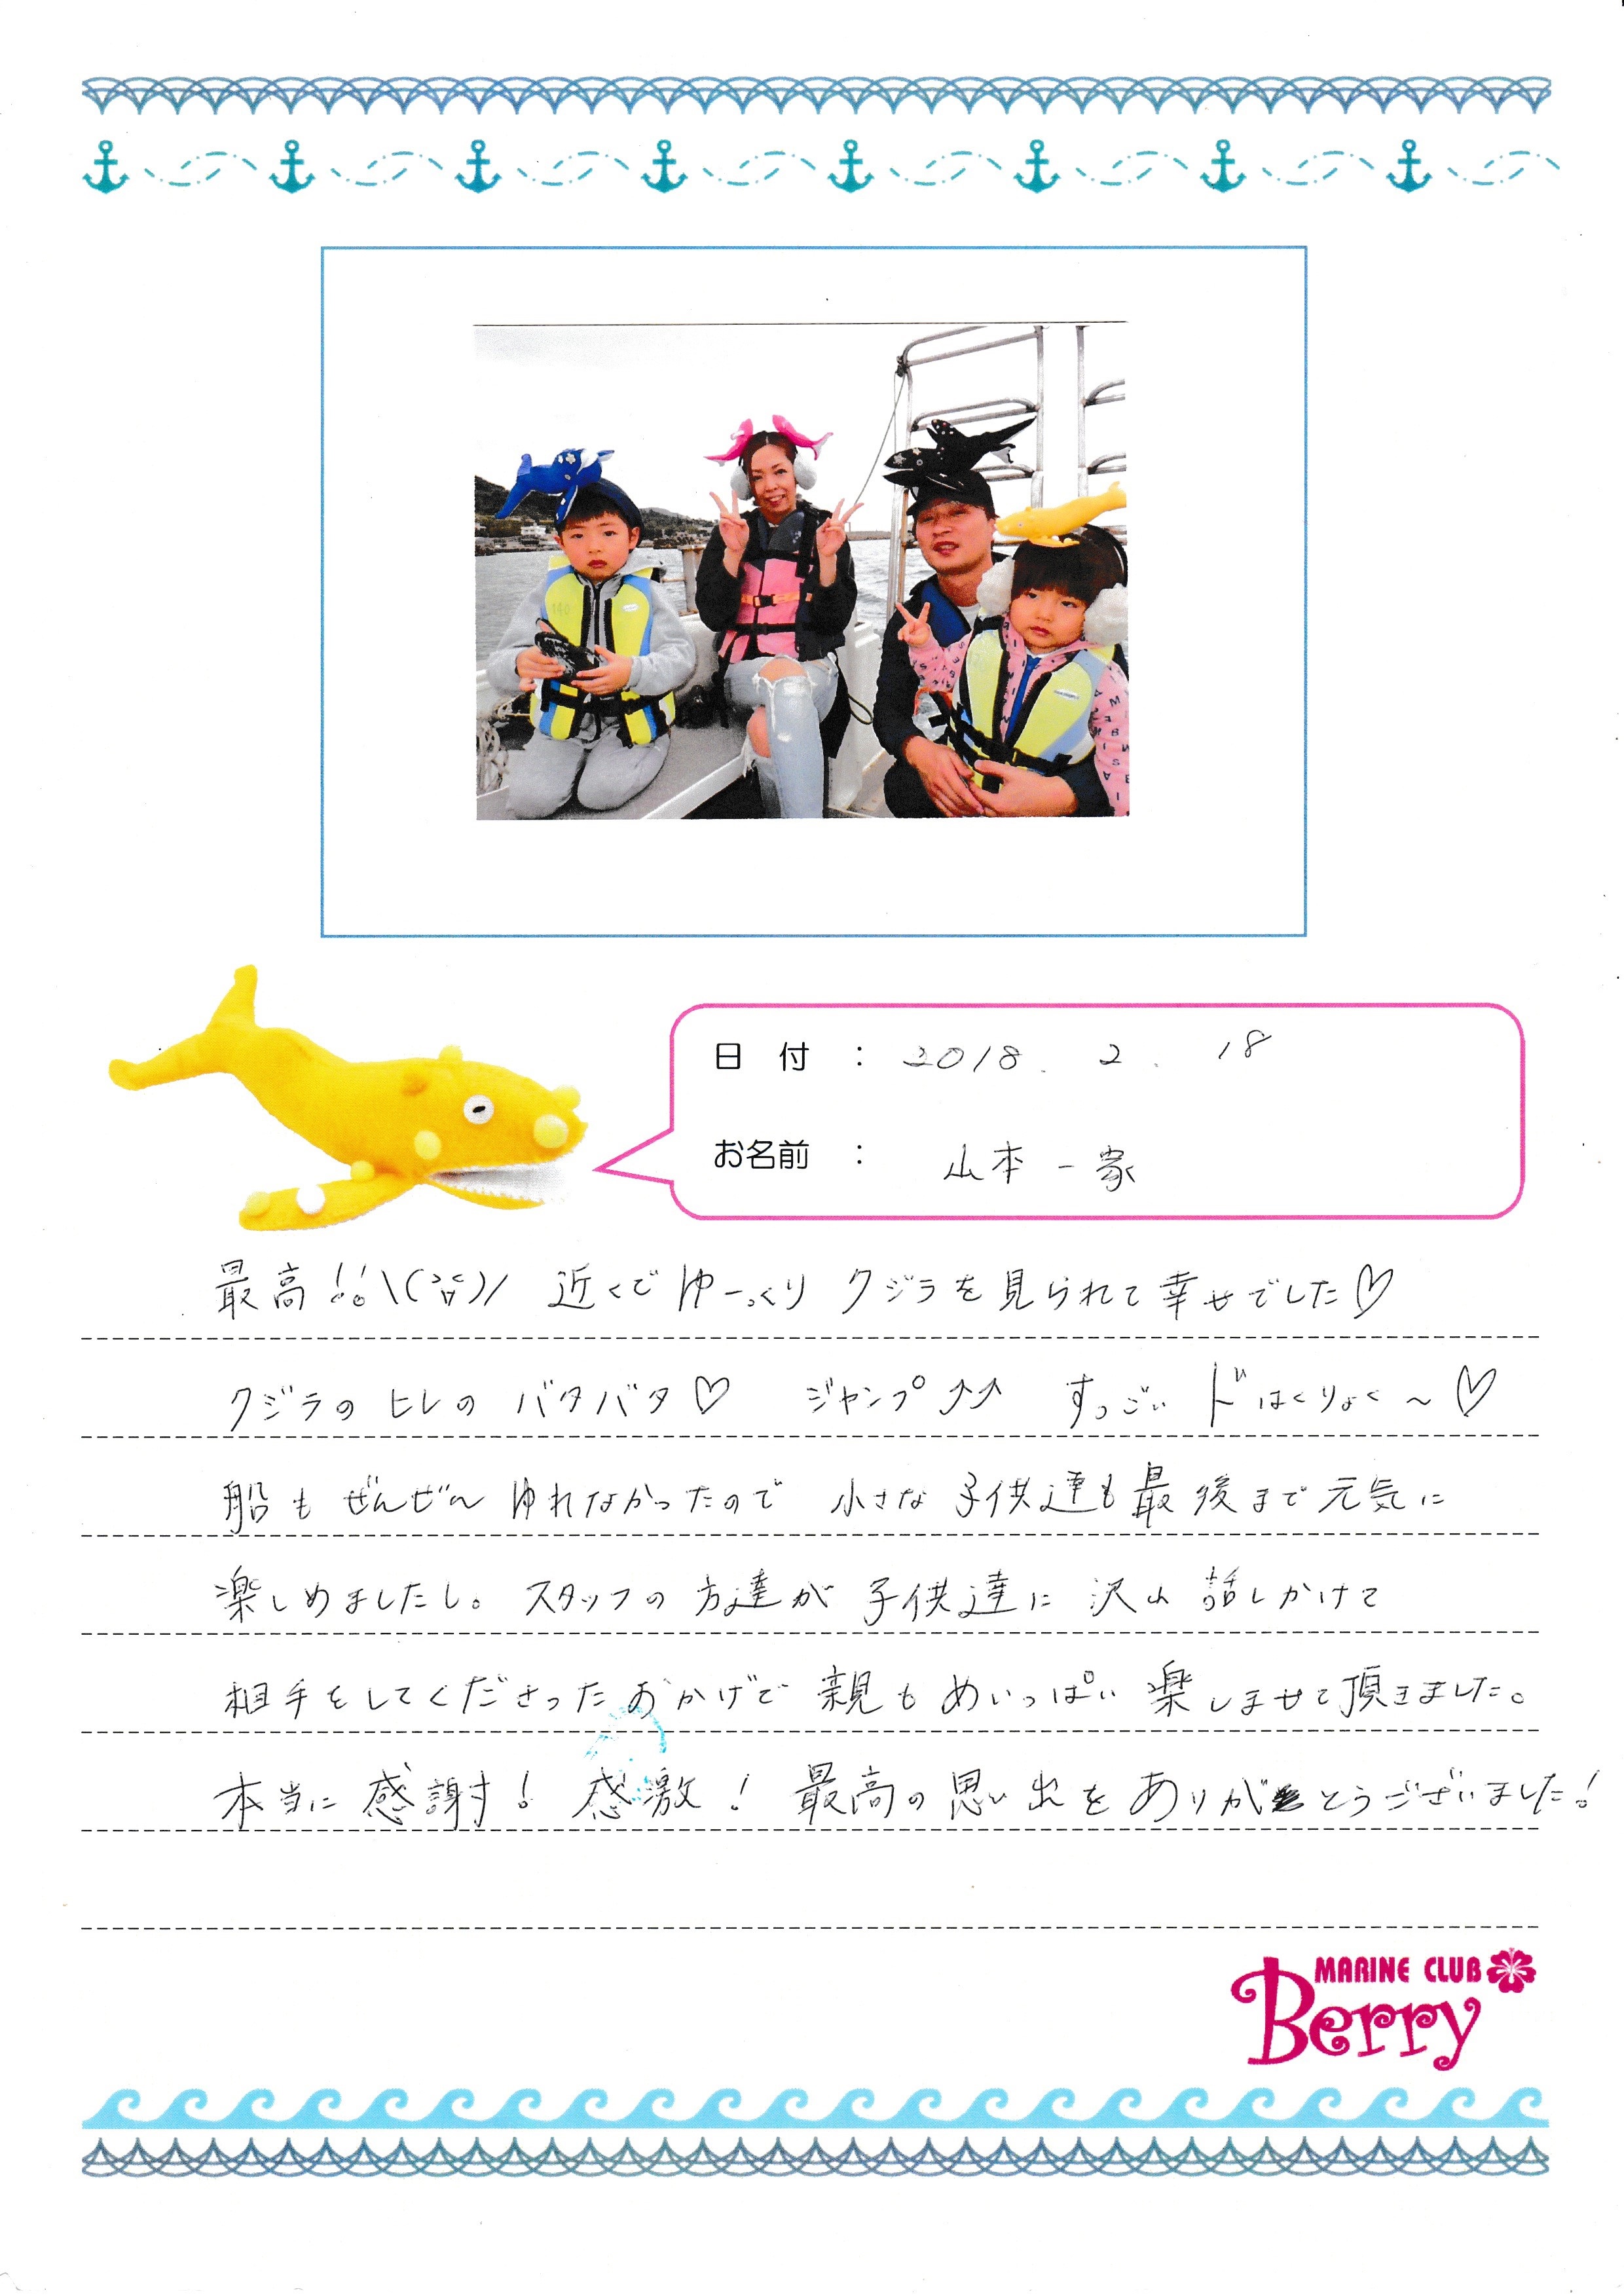 日付 : 2018. 2. 18
お名前 : 山本一家
最高!!\(^▽^)/ 近くでゆーっくりクジラを見られて幸せでした♡
クジラのヒレのバタバタ♡ ジャンプ↑↑ すっごいドはくりょく〜♡
船もぜんぜんゆれなかったので 小さな子供達も最後まで元気に
楽しめましたし。スタッフの方達が子供達に沢山話しかけて
相手をしてくださったおかげで親もめいっぱい楽しませて頂きました。
本当に感謝!感激!最高の思い出をありがとうございました!
MARINE CLUB
Berry